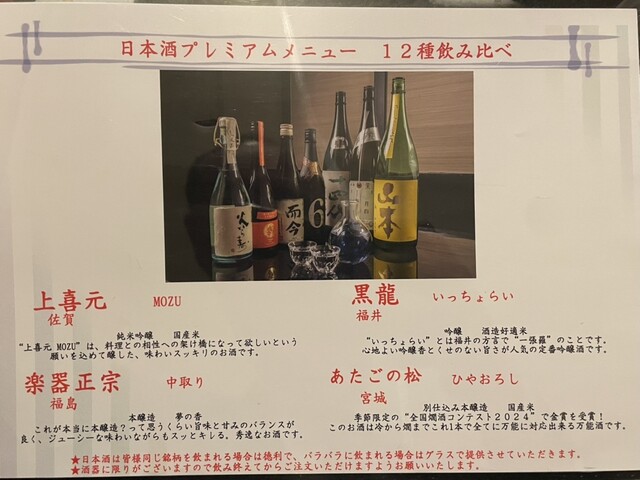 日本酒プレミアムメニュー　１２種飲み比べ
而今
6
山本
上喜元　MOZU
佐賀
純米吟醸　国産米
“上喜元 MOZU”は、料理との相性への架け橋になって欲しいという
願いを込めて醸した、味わいスッキリのお酒です。
黒龍　いっちょらい
福井
吟醸　酒造好適米
“いっちょらい”とは福井の方言で“一張羅”のことです。
心地よい吟醸香とくせのない旨さが人気の定番吟醸酒です。
楽器正宗　中取り
福島
本醸造　夢の香
これが本当に本醸造？って思うくらい旨味と甘みのバランスが
良く、ジューシーな味わいながらもスッとキレる。秀逸なお酒です。
あたごの松　ひやおろし
宮城
別仕込み本醸造　国産米
季節限定の“全国燗酒コンテスト２０２４”で金賞を受賞！
このお酒は冷から燗まででこれ１本で全てに万能に対応出来る万能酒です。
★日本酒は皆様同じ銘柄を飲まれる場合は徳利で、バラバラに飲まれる場合はグラスで提供させていただきます。
★酒器に限りがございますので飲み終えてからご注文いただけますようお願いいたします。